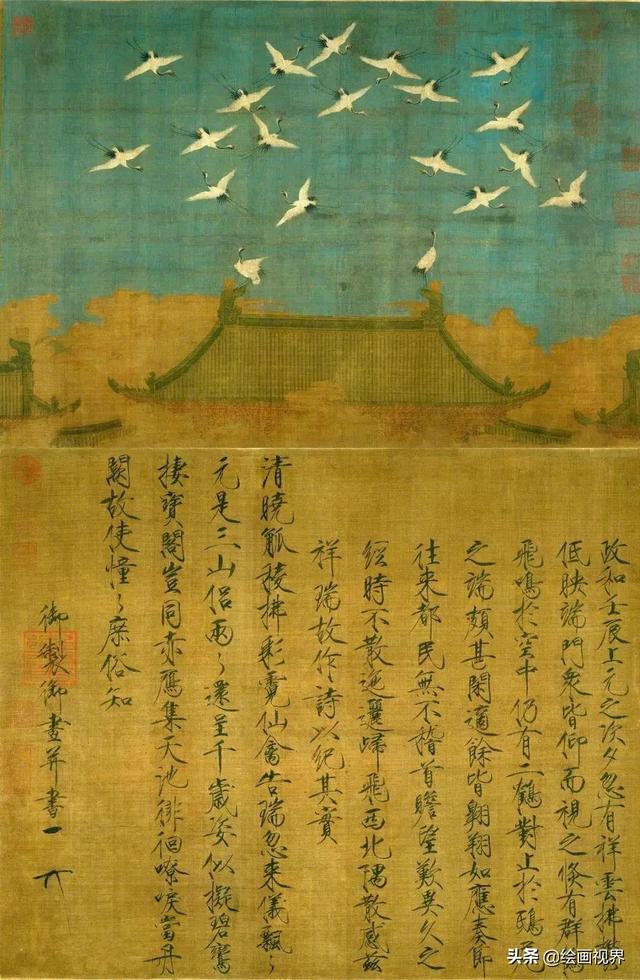 政和壬辰上元之次夕忽有祥雲拂鬱
低映端門衆皆仰而視之倏有群鶴
飛鳴於空中仍有二鶴對止於鴟
之端頗甚閑適餘皆翱翔如應奏節
往來都民無不稽首瞻望歎異久之
經時不散迤邐歸飛西北隅散感茲
祥瑞故作詩以紀其實
清曉觚稜拂彩霓仙禽告瑞忽來儀飄〻
元是三山侶兩〻還呈千歲姿似擬碧鸞
棲寶閣豈同赤鴈集天池徘徊嘹唳當丹
闕故使憧〻庶俗知
御製御畫并書
头条 @绘画视界